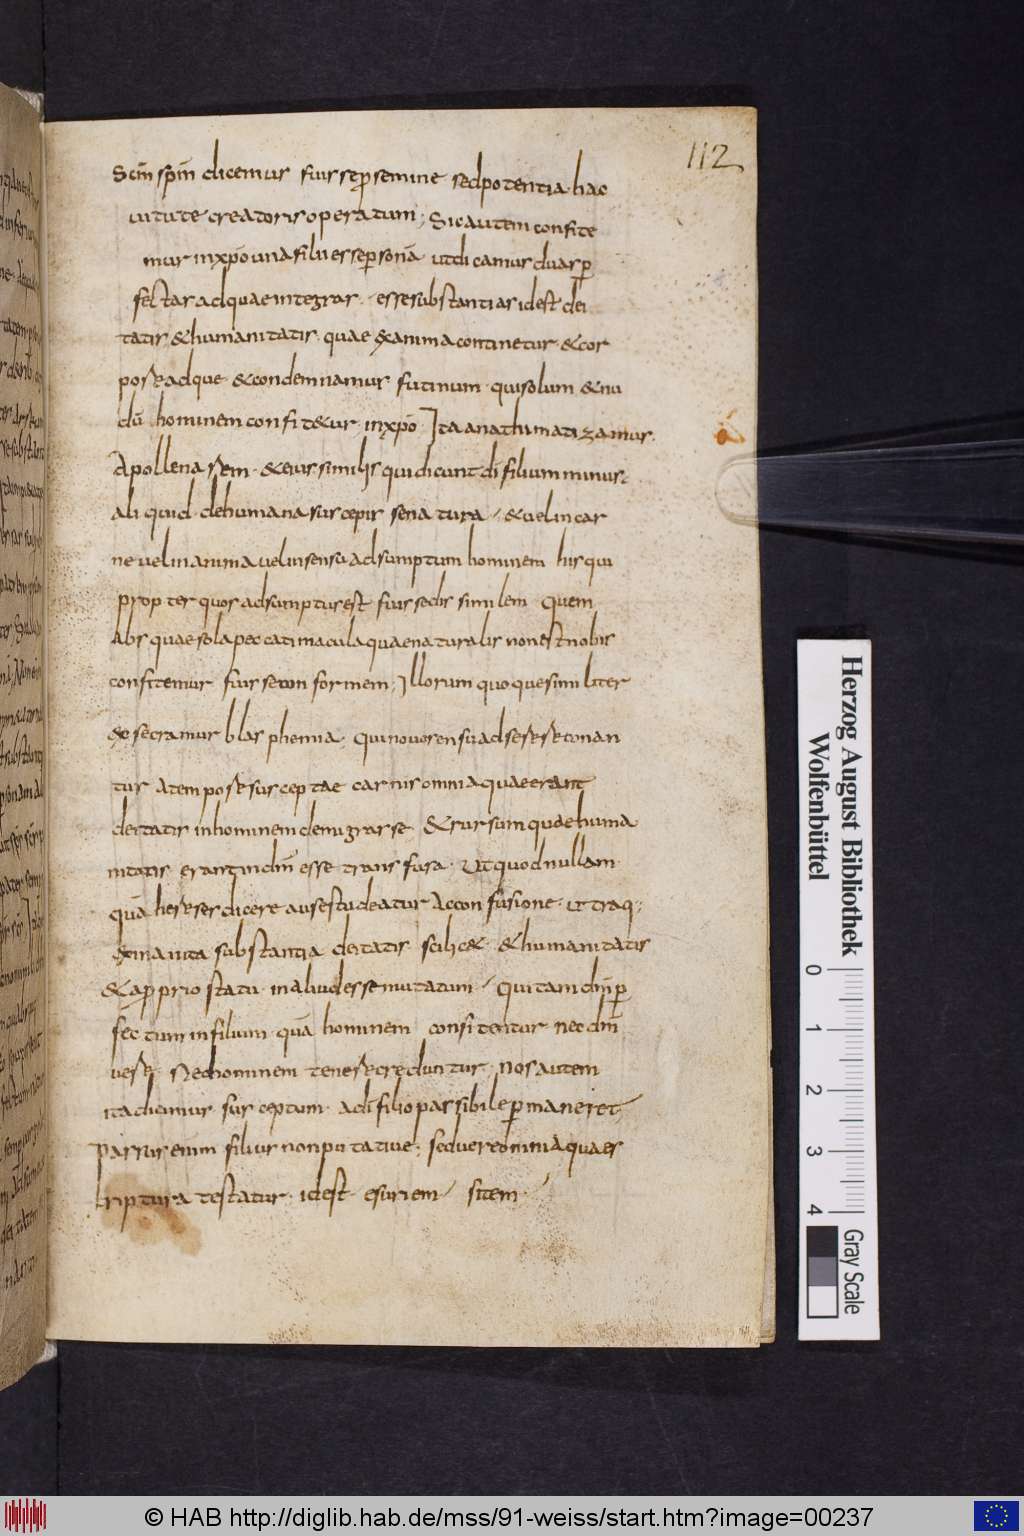 112
Scm̄ spm̄ dicemus fuisse p semine sed potentia hac
uirtute creatoris operatum; Sic autem confite
mur in xp̄o una filii esse personā ut dicamus duas p
fectas adque integras esse substantias id est dei
tatis & humanitatis quae ex anima continetur & cor
pore adque & condemnamus futinum qui solum & nu
dū hominem confit&ur in xp̄o Ita anathimatizamus
Apollenarem & eius similis qui dicunt dī filium minus
ali quid de humana suscepisse natura & uel in car
ne uel in anima uel in sensu adsumptum hominem his qui
propter quos adsumptus est fuisse dissimilem Quem
abs quae sola peccati macula quae naturalis non est nobis
confitemur fuisse conformem; Illorum quoque similiter
exsecramur blasphemia; qui nouo sensu adserere conan
tur a tempore susceptae carnis omnia quae erant
deitatis in hominem demigrasse & rursum quae huma
nitatis erant in dm̄ esse transfusa Ut quod nullam
quā heresis dicere ausest udeatur Ac confusione utraq;
exinanita substantia deitatis scilic& & humanitatis
& a pprio statu in aliud esse mutatum Qui tam dm̄ p
fectum in filium quā hominem confitentur nec dm̄
uere Nec hominem tenere creduntur Nos autem
ita dicimus susceptum a dī filio passibile p maneret
passus enim filius non putatiue; sed uere omnia quae s
criptura testatur id est esuriem sitem
Herzog August Bibliothek
Wolfenbüttel
0 1 2 3 4
Gray Scale
© HAB http://diglib.hab.de/mss/91-weiss/start.htm?image=00237